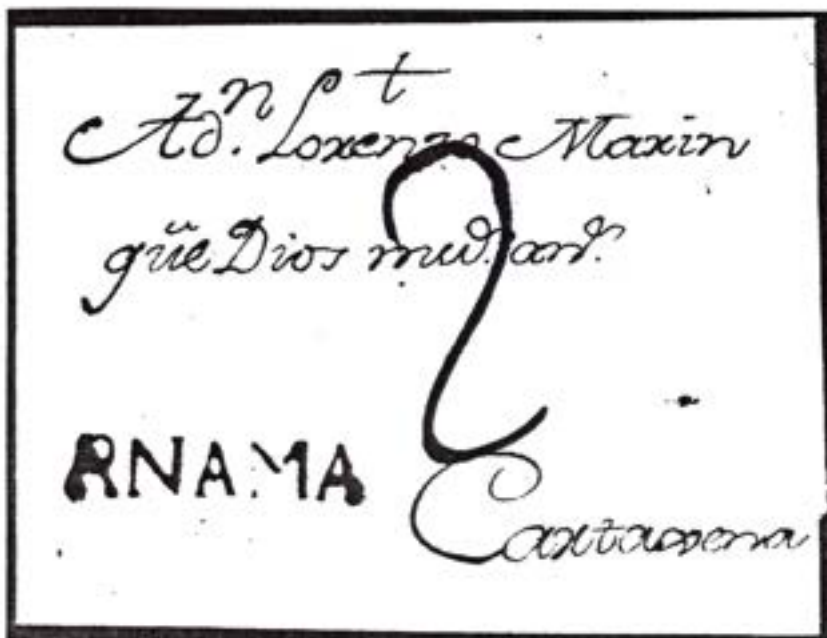 +
A Dn. Lorenzo Marin
güe Dios mud. and.
2
RNAMA
Cartaxena